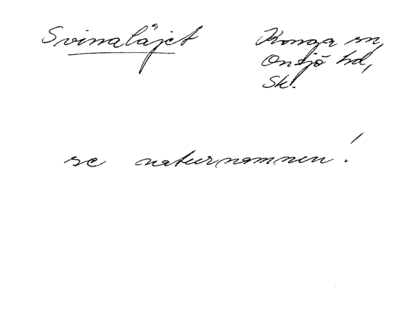 Svinalåjet
Konga sn,
Onsjö hd,
Sk.
se naturnamnen!